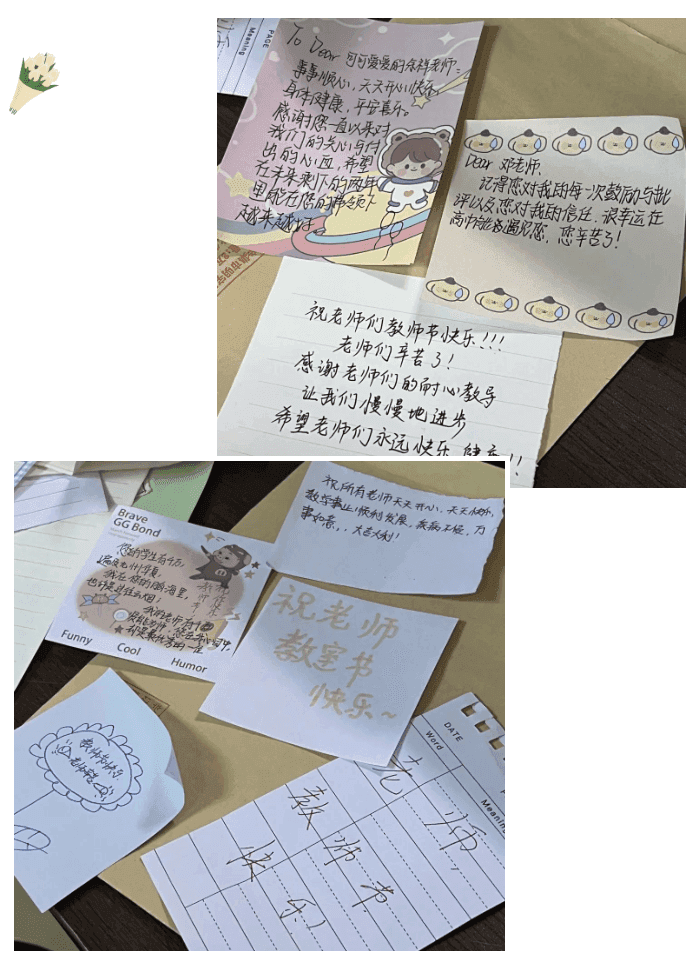 PAGE
Meaning
To Dear 可可爱爱的余祥老师:
事事顺心,天天开心快乐,
身体健康,平安喜乐。
感谢您一直以来对
我们的关心与付
出的心血,希望
在未来剩下的两年
里能在您的带领下
越来越好。
Dear 邓老师,
记得您对我的每一次鼓励与批
评以及您对我的信任,很幸运在
高中能够遇见您,您辛苦了!
祝老师们教师节快乐!!!
老师们辛苦了!
感谢老师们的耐心教导
让我们慢慢地进步
希望老师们永远快乐 健康!!
祝所有老师天天开心,天天快乐,
教学事业顺利发展,疾病不侵,万
事如意,大吉大利!
Brave
GG Bond
您的学生有千万,
遍及九州华夏,
我在您的脑海里,
也许是过往云烟;
我的老师有
您在我心目中,
却是
Funny
Cool
Humor
祝老师
教室节
快乐~
教师节快乐
老师辛苦
DATE
Word
Meaning
老师,
教师节
快乐!